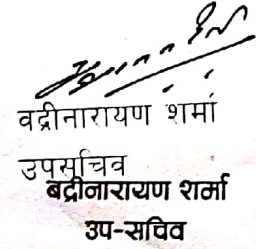 वद्रीनारायण शर्मा
उपसचिव
बद्रीनारायण शर्मा
उप-सचिव